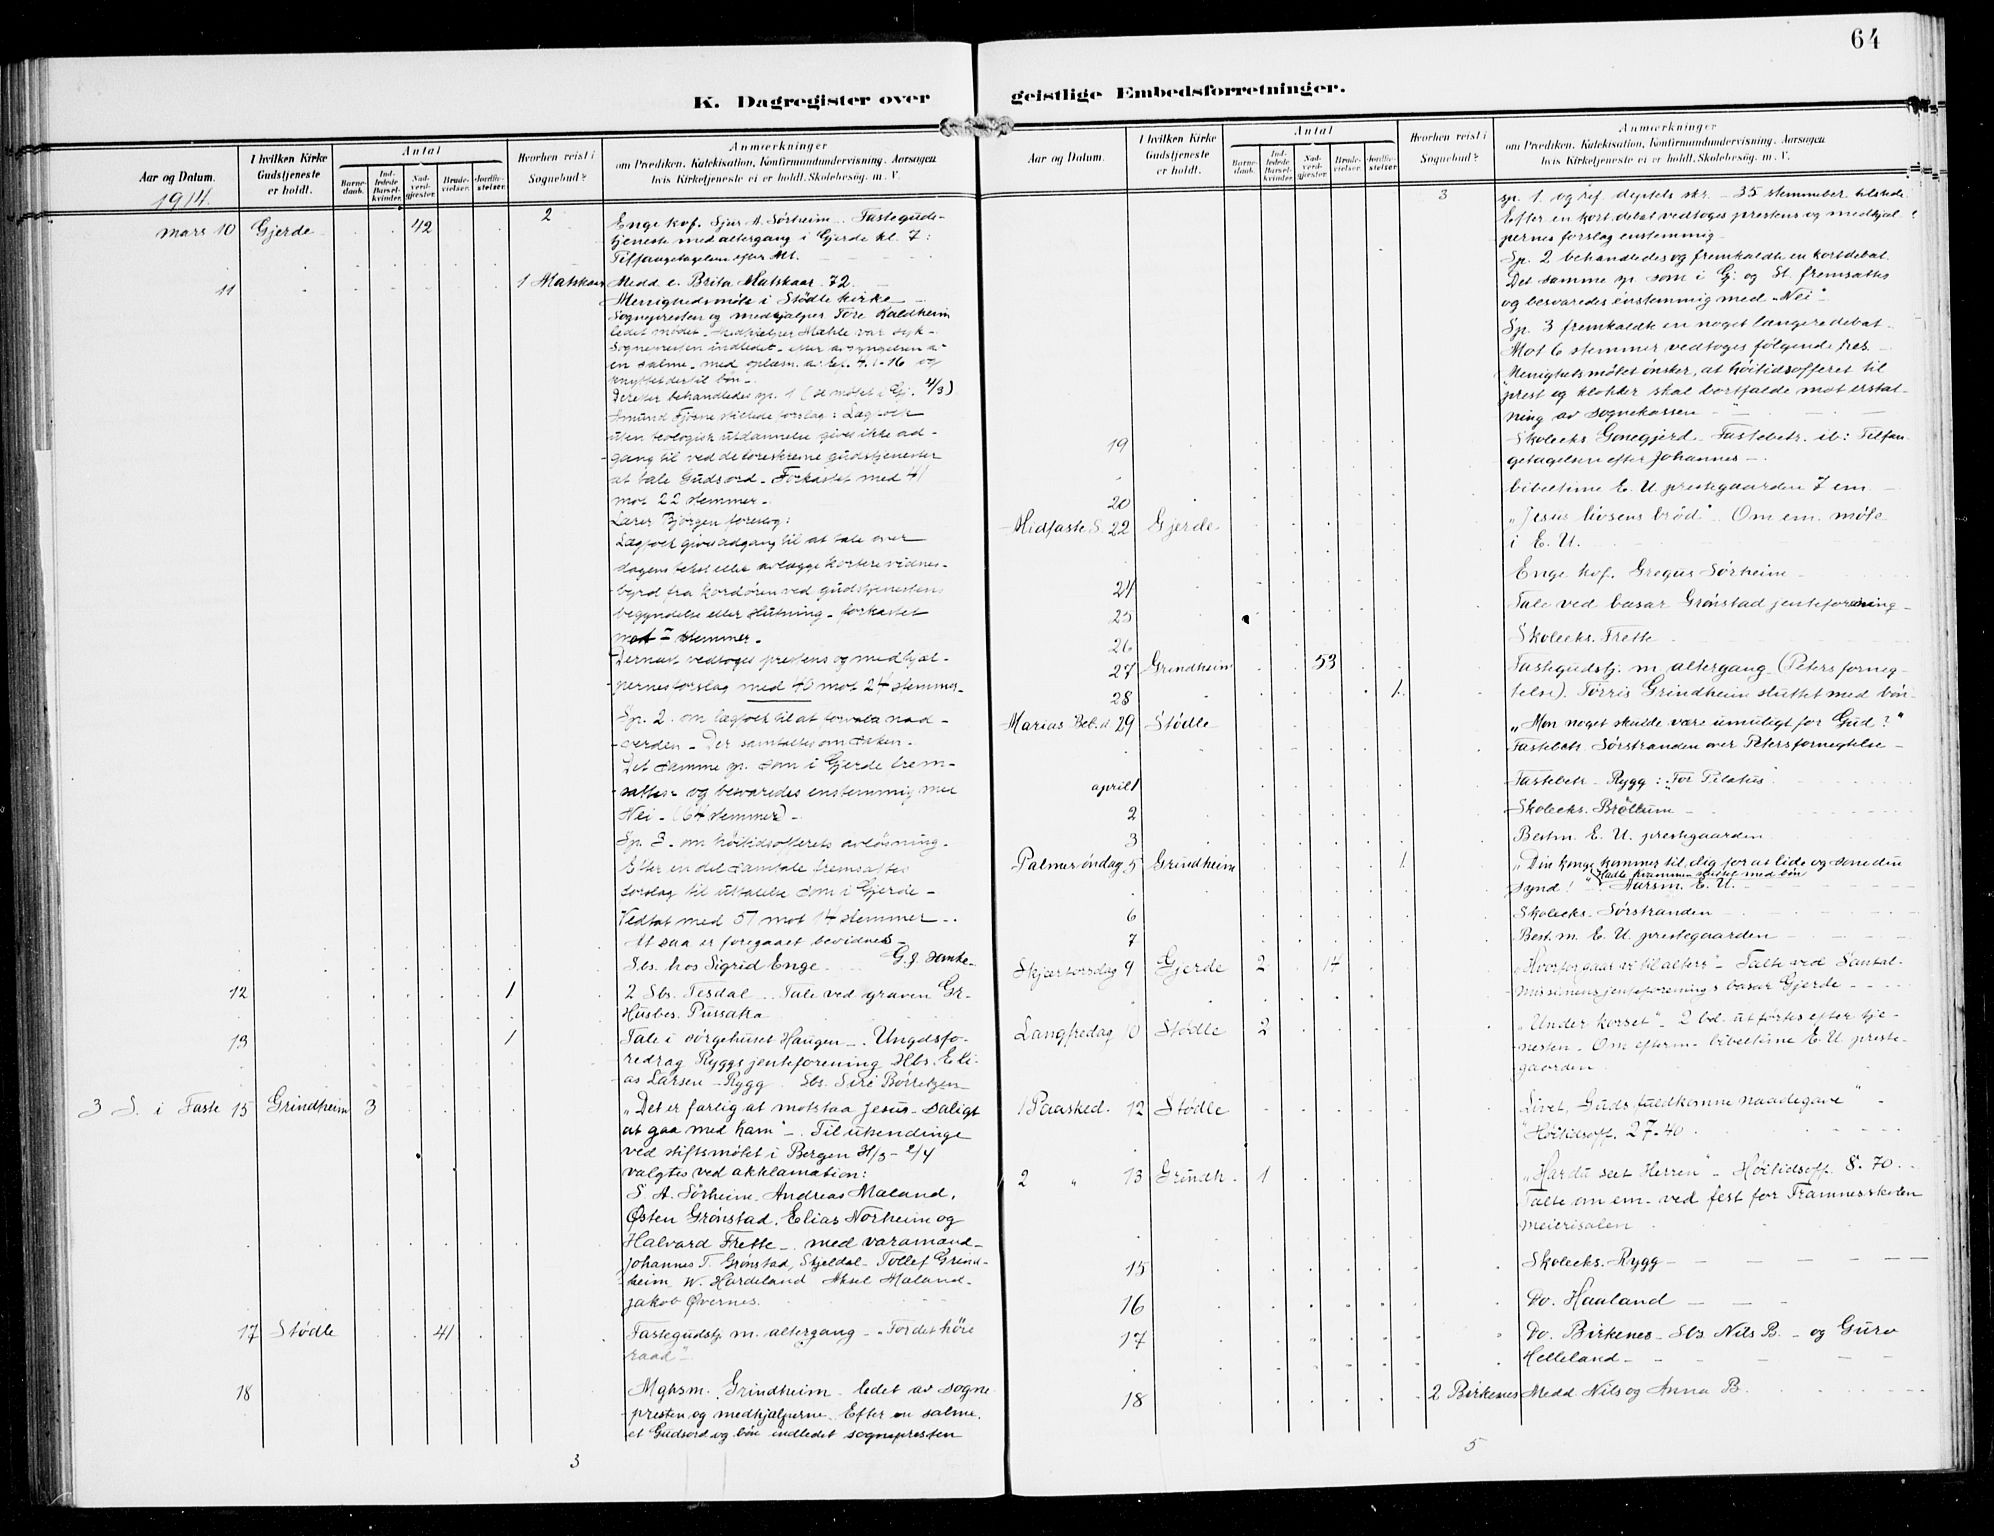 64
K. Dagregister over
Aar og Datum. I hvilken Kirke Gudstjeneste er holdt. Antal Barnedaab. Indledede Barselkvinder. Nadverdgjæster. Brudevielser. Jordfæstelser. Hvorhen reist i Sognebud? Anmærkninger om Prædiken, Katekisation, Konfirmandundervisning, Aarsagen hvis Kirketjeneste ei er holdt, Skolebesøg, m. V.
1914
2
mars 10 Gjerde 42 Enge kof. Sjur A. Sørheim. Fasteguds-
tjeneste med altergang i Gjerde kl. 7:
Tilfangetagelsen efter Mt.
11 1 Matskaar Medd e. Brita Matskaar. 72.
Menighedsmøte i Stødle kirke
Sognepresten og medhjælper Tore Kaldheim
ledet mødet. Medhjelper Mæhle var syk.
Sognepresten indledet efter avsyngelsen a-
en salme med oplæsn. a: Ef. 4. 1-16 og
knyttet dertil bøn.
Derefter behandledes sp. 1 (se møtet i Gj. 4/3)
Amund Fjøsne stillede forslag: Lægfolk
uten teologisk utdannelse gives ikke ad-
gang til ved de foreskrevne gudstjenester
at tale Guds ord. Forkastet med 41
mot 22 stemmer.
Lærer Bjørgen foreslog:
Lægfolk gives adgang til at tale over
dagens tekst eller avlægge kortere vidnes-
byrd fra kordøren ved gudstjenestens
begyndelse eller slutning. forkastet
stemmer.
Dernæst vedtoges prestens og medhjæl-
pernes forslag med 40 mot 24 stemmer.
Sp. 2. om lægfolk til at forvalte nad-
verden. Der samtaltes om saken.
Det samme sp. som i Gjerde frem-
sattes og besvaredes enstemmig med
Nei. (64 stemmer).
Sp. 3. om høitidsofferets avløsning.
Efter en del samtale fremsattes
forslag til uttalelse som i Gjerde.
Vedtat med 57 mot 14 stemmer.
At saa er foregaaet bevidnes
Sbs. hos Sigrid Enge.
12 1 2 Sbs. Tesdal. Tale ved graven Gr.
Husbes. Pussaka
13 1 Tale i sørgehuset Haugen. Ungdsfo-
redrag Ryggs jenteforening Hbs. Eli-
as Larsen Rygg. Sbs. Siri Børretzen
3 S. i Faste 15 Grindheim 3 „Det er farlig at motstaa Jesus saligt
at gaa med ham". Til utsendinge
ved stiftsmøtet i Bergen 31/3 - 2/4
valgtes ved akklamation:
S. A. Sørheim. Andreas Maland.
Østen Grønstad. Elias Norheim og
Halvard Frette. med varamænd
Johannes T. Grønstad, Skjeldal. Tollef Grind-
heim, W. Hardeland Aksel Maland
Jakob Øvernes.
17 Stødle 41 Fastegudstj. m. altergang. „For det høie
raad"
18 Mghsm. Grindheim. ledet av sogne
presten og medhjælperne. Efter en salme.
et Gudsord og bøn indledet sognepresten
3
geistlige Embedsforretninger.
Aar og Datum. I hvilken Kirke Gudstjeneste er holdt. Antal Barnedaab. Indledede Barselkvinder. Nadverdgjæster. Brudevielser. Jordfæstelser. Hvorhen reist i Sognebud? Anmærkninger om Prædiken, Katekisation, Konfirmandundervisning, Aarsagen hvis Kirketjeneste ei er holdt, Skolebesøg, m. V.
3 sp. 1. og ref. deptets skr. 35 stemmber. tilstede
Efter en kort debat vedtoges prestens og medhjæl-
pernes forslag enstemmig
Sp. 2 behandledes og fremkaldte en kort debat.
Det samme sp. som i G. og St. fremsattes
og besvaredes enstemmig med „Nei"
Sp. 3 fremkaldte en noget længere debat.
Mot 6 stemmer vedtoges følgende res.
„Menighetsmøtet ønsker, at høitidsofferet til
prest og klokker skal bortfalde mot erstat-
ning av sognekassen"
19 Skoleeks Gonegjerd. Fastebetr. ib: Tilfan-
getagelsen efter Johannes
20 bibeltime E. U. prestegaarden 7 em
Midfaste S. 22 Gjerde „Jesus livsens brød". Om em. møte
i E. U.
24 Enge kof. Gregus Sørheim
25 Tale ved basar Grønstad jenteforening
26 Skoleeks. Frette
27 Grindheim 53 Fastegudstj. m. altergang (Peters forneg-
28 1 telse). Torris Grindheim sluttet med bøn
Marias Beb. d. 29 Stødle „Mon noget skulde være umuligt for Gud?"
Fastebetr. Sørstranden over Peters fornegtelse
april 1 Fastebetr. Rygg: „For Pilatus"
2 Skoleeks. Bröllum
3 Bestm. E. U. prestegaarden
Palmesøndag 5 Grindheim 1 „Din konge kommer til dig for at lide og sone din
synd!" Aarsm. E. U.
6 Skoleeks. Sørstranden
7 Best. m. E. U. prestegaarden
Skjærtorsdag 9 Gjerde 2 14 „Hvorfor gaar vi til alters". Talte ved Santal-
missionens jenteforenings basar Gjerde
Langfredag 10 Stødle 2 „Under korset". 2 bd. utførtes efter tje-
nesten. Om efterm. bibeltime E. U. preste-
gaarden
1 Paasked. 12 Stødle „Livet, Guds fuldkomne naadegave"
Høitidsoff. 27.40
2 „ 13 Grindh. 1 „Har du seet Herren". Høitidsoff. 8.70.
Talte om em. ved fest for Framnesskolen
meierisalen
15 Skoleeks. Rygg
16 Do. Haaland
17 Do. Birkenes. Sbs Nils B. og Guro
Helleland
18 2 Birkenes Medd Nils og Anna B.
5